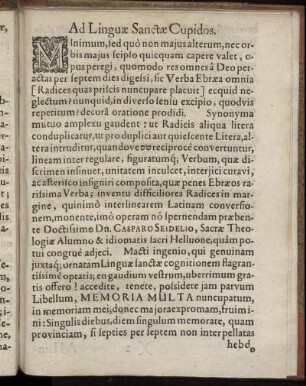 Ad Linguæ Sanctæ Cupidos.
MInimum, sed quo non majus alterum, nec or-
bis majus seipso quicquam capere valet, o-
pus peregi, quomodo res omnes à Deo per-
actas per septem dies digessi, sic Verba Ebræa omnia
[Radices quas priscis nuncupare placuit] ecquid ne-
glectum? nunquid, in diverso seniu excipio, quodvis
repetitum? decorâ oratione prodidi. Synonyma
mutuo amplexu gaudent: ut Radicis aliqua litera
conduplicatur, ut produplici aut quiescente Litera, al-
tera intruditur, quandove reciprocè convertuntur,
lineam inter regulare, figuratumq; Verbum, quæ di-
scrimen insinuet, unitatem inculcet, interjici curavi,
ac asterisco insigniri composita, quæ penes Ebræos ra-
rissima Verba; inventu difficiliores Radices in mar-
gine, quinimò interlinearem Latinam conversio-
nem, monente, imò operam nõ spernendam præben-
te Doctissimo Dn. CASPARO SEIDELIO, Sacræ Theo-
logiæ Alumno & idiomatis sacri Helluone, quàm po-
tui congruè adjeci. Macti ingenio, qui genuinam
juxtaq; ornatam Linguæ sanctæ cognitionem flagran-
tissimè optatis; en gaudium vestrum, uberrimum gra-
tis offero! accedite, tenete, possidete jam parvum
Libellum, MEMORIA MULTA nuncupatum,
in memoriam mei, donec majora expromam, fruimi-
ni: Singulis diebus, diem singulum memorate, quam
provinciam, si septies per septem non interpellatas
hebd